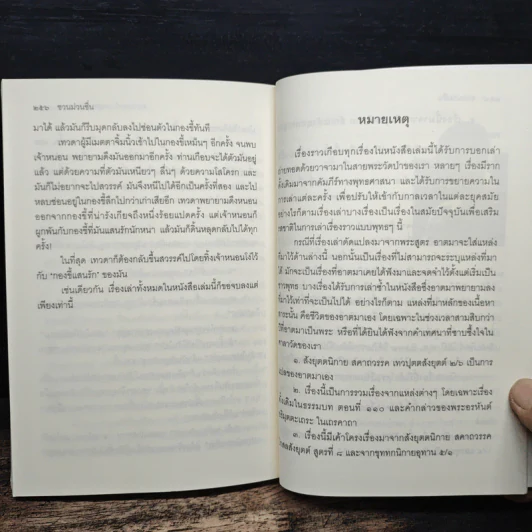 ๒๕๖ ชวนม่วนชื่น
มาได้ แล้วมันก็รีบมุดกลับลงไปซ่อนตัวในกองขี้ทันที
เทวดาผู้มีเมตตาจิ้มนิ้วเข้าไปในกองขี้เหม็นๆ อีกครั้ง จนพบ
เจ้าหนอน พยายามดึงมันออกมาอีกครั้ง ท่านเกือบจะได้ตัวมันอยู่
แล้ว แต่ด้วยความที่ตัวมันเหนียวๆ ลื่นๆ ด้วยความโสโครก และ
มันก็ไม่อยากจะไปสวรรค์ มันจึงหนีไปได้อีกเป็นครั้งที่สอง และไป
หลบซ่อนอยู่ในกองขี้ลึกไปกว่าเก่าเสียอีก เทวดาพยายามดึงหนอน
ออกจากกองขี้ที่น่ารังเกียจถึงหนึ่งร้อยแปดครั้ง แต่เจ้าหนอนก็
ผูกพันกับกองขี้ที่มันแสนรักนักหนา แล้วมันก็ดิ้นหลุดกลับไปได้ทุก
ครั้ง!
ในที่สุด เทวดาก็ต้องกลับขึ้นสวรรค์ไปโดยทิ้งเจ้าหนอนโง่ไว้
กับ "กองขี้แสนรัก" ของมัน
เช่นเดียวกัน เรื่องเล่าทั้งหมดในหนังสือเล่มนี้ก็ขอจบลงแต่
เพียงเท่านี้
หมายเหตุ
เรื่องราวเกือบทุกเรื่องในหนังสือเล่มนี้ได้รับการบอกเล่า
ถ่ายทอดด้วยวาจามาในสายพระวัดป่าของเรา หลายๆ เรื่องมีราก
ดั้งเดิมมาจากคัมภีร์ทางพุทธศาสนา และได้รับการขยายความใน
การเล่าแต่ละครั้ง เพื่อปรับให้เข้ากับกาลเวลาในแต่ละยุคสมัย
อย่างไรก็ตามเรื่องเล่าบางเรื่องเป็นเรื่องในสมัยปัจจุบันเพื่อเสริม
รสชาติในการเล่าเรื่องราวแบบพุทธๆ นี้
กรณีที่เรื่องเล่าดัดแปลงมาจากพระสูตร อาตมาจะใส่แหล่ง
ที่มาไว้ด้านล่างนี้ นอกนั้นเป็นเรื่องที่ไม่สามารถจะระบุแหล่งที่มา
ได้ มักจะเป็นเรื่องที่อาตมาเคยได้ฟังมาและจดจำไว้ตั้งแต่เริ่มเป็น
ชาวพุทธ บางเรื่องได้รับการเล่าซ้ำในหนังสือซึ่งอาตมาพยายามลง
ที่มาไว้เท่าที่จะเป็นไปได้ อย่างไรก็ตาม แหล่งที่มาหลักของเนื้อหา
เหล่านั้น คือชีวิตของอาตมาเอง โดยเฉพาะในช่วงเวลาสามสิบกว่า
ปีที่อาตมาเป็นพระ หรือที่ได้ยินได้ฟังจากคำเทศนาที่ซาบซึ้งใจใน
ศาลาวัดของเรา
๑. สังยุตตนิกาย สคาถวรรค เทวปุตตสังยุตต์ ๒/๖ เป็นการ
แปลของอาตมาเอง
๒. เรื่องนี้เป็นการรวมเรื่องจากแหล่งต่างๆ โดยเฉพาะเรื่อง
ดั้งเดิมในธรรมบท ตอนที่ ๑๑๐ และคำกล่าวของพระอรหันต์
อธิมุตตะเถระ ในเถรคาถา
๓. เรื่องนี้มีเค้าโครงเรื่องมาจากสังยุตตนิกาย สคาถวรรค
โกศลสังยุตต์ สูตรที่ ๘ และจากขุททกนิกายอุทาน ๕/๑